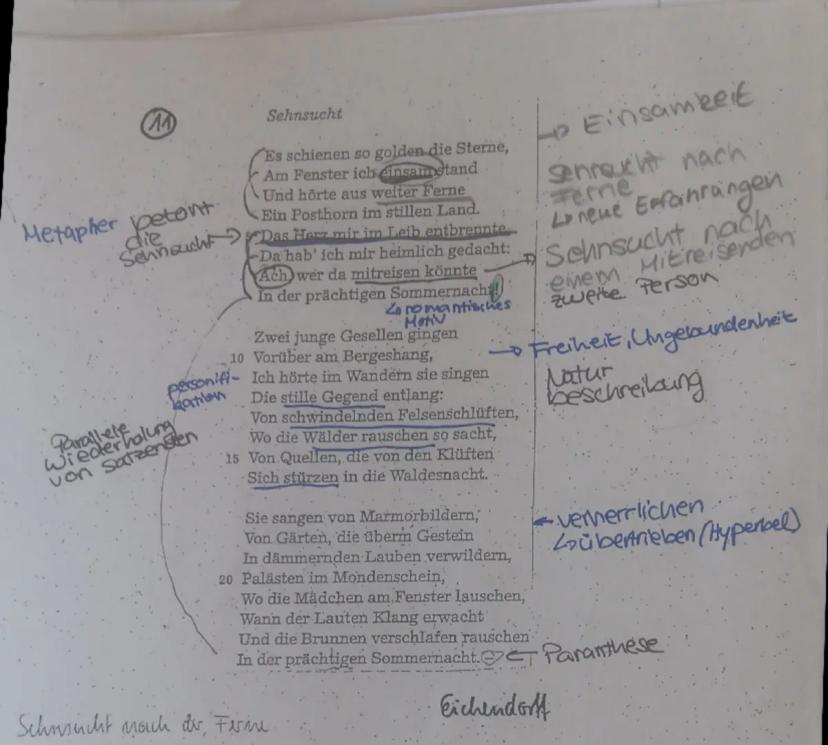 11
Sehnsucht
→ Einsamkeit
Es schienen so golden die Sterne,
Am Fenster ich einsam stand
Und hörte aus weiter Ferne
Ein Posthorn im stillen Land.
Das Herz mir im Leib entbrennte,
Da hab' ich mir heimlich gedacht:
Ach, wer da mitreisen könnte
In der prächtigen Sommernacht!
Sehnsucht nach
Ferne
↳ neue Erfahrungen
Metapher betont
die
Sehnsucht →
→ Sehnsucht nach
einem Mitreisenden
zweite Person
↳ romantisches
Motiv
Zwei junge Gesellen gingen
10 Vorüber am Bergeshang,
Ich hörte im Wandern sie singen
Die stille Gegend entlang:
Von schwindelnden Felsenschlüften,
Wo die Wälder rauschen so sacht,
15 Von Quellen, die von den Klüften
Sich stürzen in die Waldesnacht.
→ Freiheit, Ungebundenheit
Natur
beschreibung
personifi-
kation
Parallele
Wiederholung
von Satzenden
Sie sangen von Marmorbildern,
Von Gärten, die überm Gestein
In dämmernden Lauben verwildern,
20 Palästen im Mondenschein,
Wo die Mädchen am Fenster lauschen,
Wann der Lauten Klang erwacht
Und die Brunnen verschlafen rauschen
In der prächtigen Sommernacht.
← verherrlichen
↳ übertrieben (Hyperbel)
← Paranthese
Eichendorff
Sehnsucht nach der Ferne